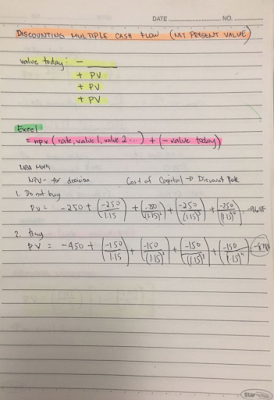 DATE NO.
DISCOUNTING MULTIPLE CASH FLOW (NET PRESENT VALUE)
value today: -
+ PV
+ PV
+ PV
Excel
= npv (rate, value 1, value 2 ...) + (-value today)
Math
NPV - for decision Cost of Capital → Discount Rate
1. Do not buy
PV = -250 + (-250/1.15) + (/(1.15)²) + (-250/(1.15)³) + (-250/(1.15)⁴)
2. Buy
PV = -450 + (-150/1.15) + (-150/(1.15)²) + (-150/(1.15)³) + (-150/(1.15)⁴)